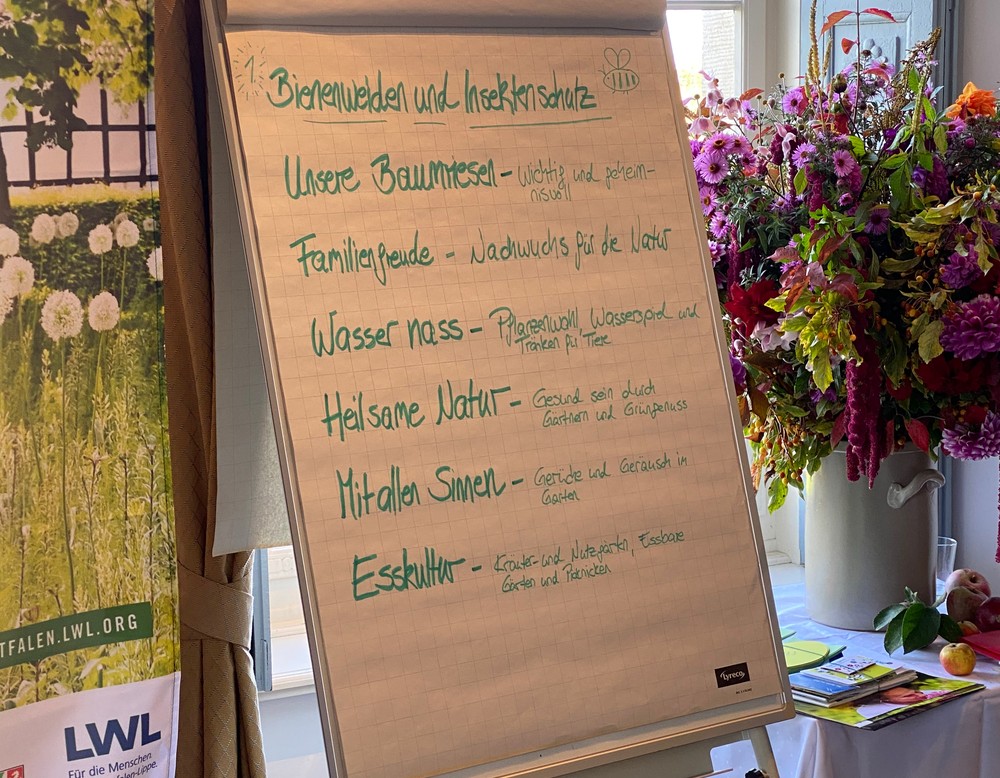 1.
Bienenweiden und Insektenschutz
Unsere Baumriesen - wichtig und geheim-
nisvoll
Familienfreude - Nachwuchs für die Natur
Wasser nass - Pflanzenwohl, Wasserspiel und
Tränken für Tiere
Heilsame Natur - Gesund sein durch
Gärtnern und Grüngenuss
Mit allen Sinnen - Gerüche und Geräusch im
Garten
Esskultur - Kräuter- und Nutzgärten, Essbare
Gärten und Picknicken
lyreco
TFALEN.LWL.ORG
LWL
Für die Menschen.
falen-Lippe.